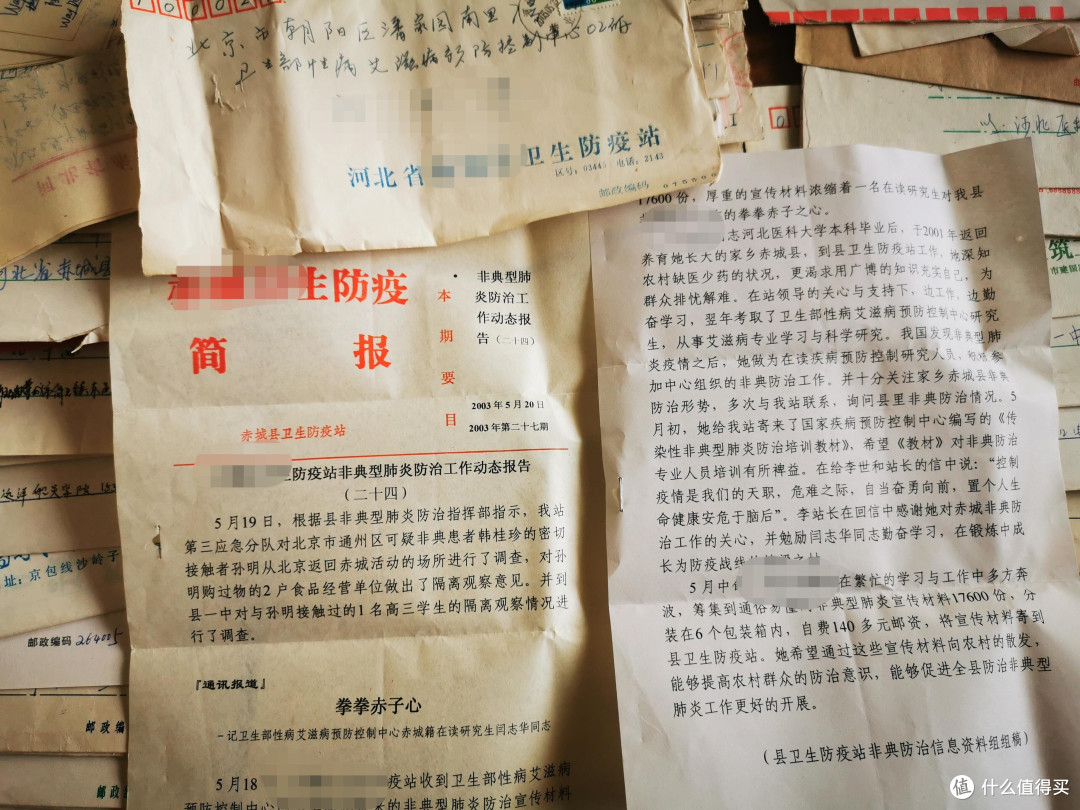 北京市朝阳区潘家园南里
卫生部性病艾滋病预防控制中心02研
河北省
卫生防疫站
区号:(0344) 电话:2143
邮政编码
河北省赤城县
生防疫
简 报
本期要目
·非典型肺
炎防治工
作动态报
告(二十四)
2003年5月20日
2003年第二十七期
赤城县卫生防疫站
防疫站非典型肺炎防治工作动态报告
(二十四)
5月19日,根据县非典型肺炎防治指挥部指示,我站
第三应急分队对北京市通州区可疑非典患者韩桂珍的密切
接触者孙明从北京返回赤城活动的场所进行了调查,对孙
明购过物的2户食品经营单位做出了隔离观察意见。并到
县一中对与孙明接触过的1名高三学生的隔离观察情况进
行了调查。
『通讯报道』
拳拳赤子心
-记卫生部性病艾滋病预防控制中心赤城籍在读研究生闫志华同志
5月18
疫站收到卫生部性病艾滋病
预防控制中心
的非典型肺炎防治宣传材料
17600份,厚重的宣传材料浓缩着一名在读研究生对我县
的拳拳赤子之心。
志河北医科大学本科毕业后,于2001年返回
养育她长大的家乡赤城县,到县卫生防疫站工作,她深知
农村缺医少药的状况,更渴求用广博的知识充实自己,为
群众排忧解难。在站领导的关心与支持下,边工作,边勤
奋学习,翌年考取了卫生部性病艾滋病预防控制中心研究
生,从事艾滋病专业学习与科学研究。我国发现非典型肺
炎疫情之后,她做为在读疾病预防控制研究人员,积极参
加中心组织的非典防治工作。并十分关注家乡赤城县非典
防治形势,多次与我站联系,询问县里非典防治情况。5
月初,她给我站寄来了国家疾病预防控制中心编写的《传
染性非典型肺炎防治培训教材》,希望《教材》对非典防治
专业人员培训有所裨益。在给李世和站长的信中说:“控制
疫情是我们的天职,危难之际,自当奋勇向前,置个人生
命健康安危于脑后”。李站长在回信中感谢她对赤城非典防
治工作的关心,并勉励闫志华同志勤奋学习,在锻炼中成
长为防疫战线
5月中
在繁忙的学习与工作中多方奔
波,筹集到通俗易懂的非典型肺炎宣传材料17600份,分
装在6个包装箱内,自费140多元邮资,将宣传材料寄到
县卫生防疫站。她希望通过这些宣传材料向农村的散发,
能够提高农村群众的防治意识,能够促进全县防治非典型
肺炎工作更好的开展。
(县卫生防疫站非典防治信息资料组组稿)
址:京包线沙岭子
邮政编码 264005
邮政编
邮政编
值 什么值得买